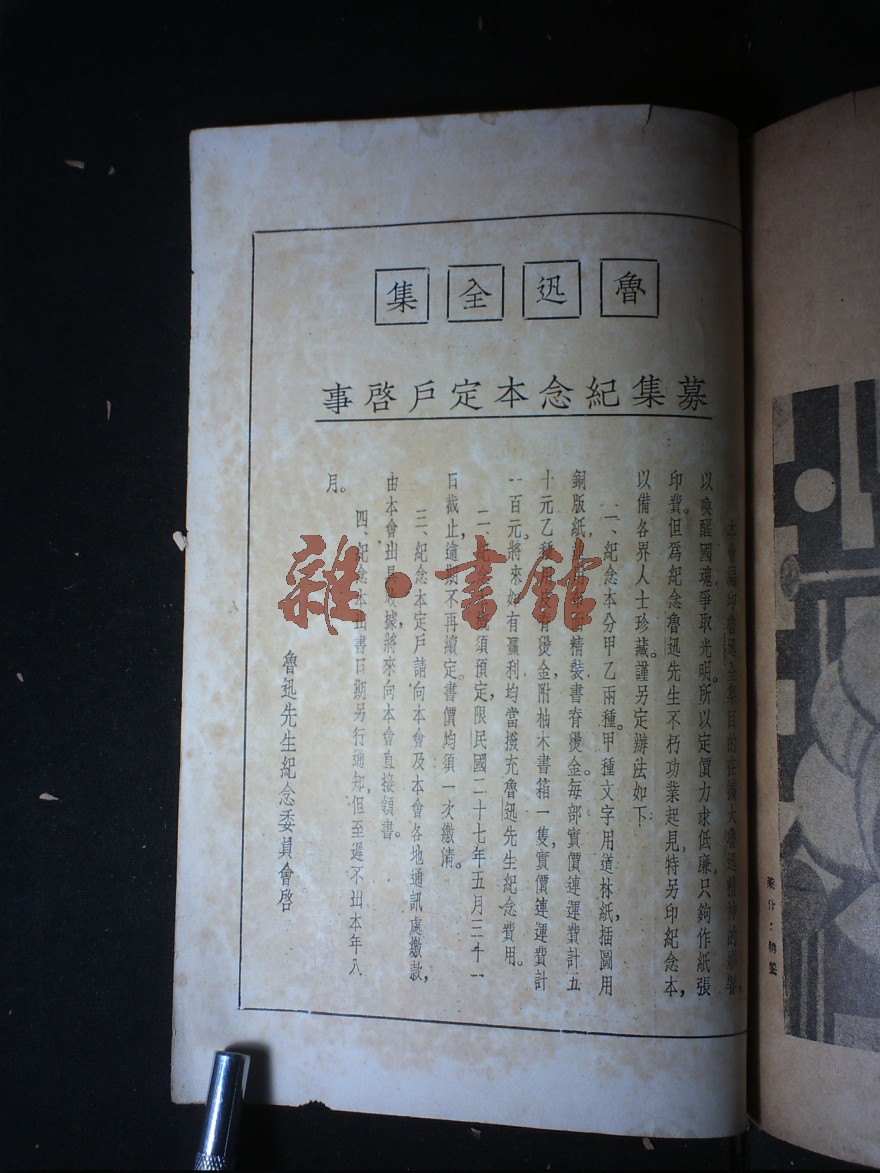 魯迅全集
募集紀念本定戶啓事
本會編印魯迅全集目的在擴大魯迅精神的影響。
以喚醒國魂，爭取光明。所以定價力求低廉，只夠作紙張
印費。但爲紀念魯迅先生不朽功業起見，特另印紀念本，
以備各界人士珍藏。謹另定辦法如下：
一、紀念本分甲乙兩種。甲種文字用道林紙，插圖用
銅版紙，精裝書脊燙金。每部實價連運費計五
十元乙種燙金，附柚木書箱一隻，實價連運費計
一百元。將來如有贏利均當撥充魯迅先生紀念費用。
二、須預定，限民國二十七年五月三十一
日截止，逾期不再續定。書價均須一次繳清。
三、紀念本定戶請向本會及本會各地通訊處繳款，
由本會出據，將來向本會直接領書。
四、紀念本出書日期另行通知，但至遲不出本年八
月。
魯迅先生紀念委員會啓
雜·書館